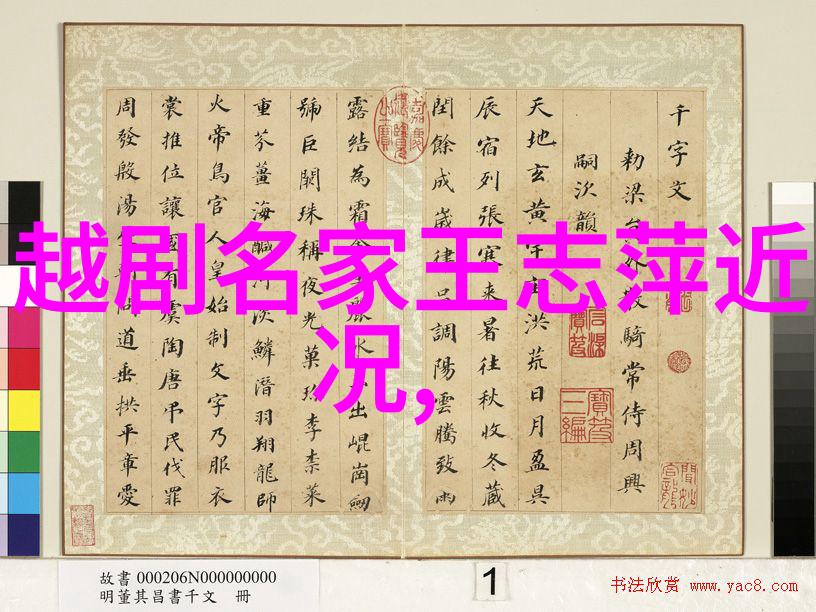 越剧名家王志萍近
况,
千字文
勅梁外散騎常侍周興
嗣次韻
天地玄黃宇宙洪荒日月盈昃
辰宿列張寒来暑往秋收冬藏
閏餘成嵗律吕調陽雲騰致雨
露結為霜金水出崐崗劒
號巨闕珠稱夜光菓珍李柰菜
重芥薑海鹹河淡鱗潛羽翔龍師
火帝鳥官人皇始制文字乃服衣
裳推位讓國有虞陶唐弔民伐罪
周發殷湯坐問道垂拱平章愛
嘉慶御覽之寶
寶笈三編
故書 000206N000000000
明董其昌書千文 冊
1
书法欣赏 www.yac8.com